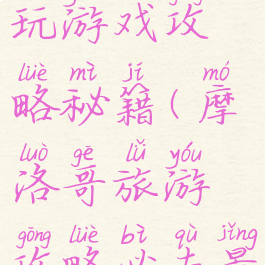 玩游戏攻
lüè mì jí mó
略秘籍(摩
luò gē lǚ yóu
洛哥旅游
gōng lüè bì qù jǐng
攻略必去景